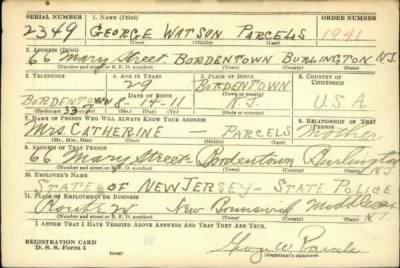 SERIAL NUMBER 1. NAME (Print) ORDER NUMBER
2349 GEORGE WATSON PARCELS 1941
(First) (Middle) (Last)
2. ADDRESS (Print)
66 Mary Street BORDENTOWN BURLINGTON N.J.
(Number and street or R. F. D. number) (Town) (County) (State)
3. TELEPHONE 4. AGE IN YEARS 5. PLACE OF BIRTH 6. COUNTRY OF CITIZENSHIP
29 BORDENTOWN
DATE OF BIRTH (Town or county)
BORDENTOWN 8-14-11 N.J. U.S.A
(Exchange) (Mo.) (Day) (Yr.) (State or country)
7. NAME OF PERSON WHO WILL ALWAYS KNOW YOUR ADDRESS 8. RELATIONSHIP OF THAT PERSON
Mrs. CATHERINE — PARCELS Mother
(Mr., Mrs., Miss) (First) (Middle) (Last)
9. ADDRESS OF THAT PERSON
66 Mary Street Bordentown Burlington N.J.
(Number and street or R. F. D. number) (Town) (County) (State)
10. EMPLOYER'S NAME
STATE OF NEW JERSEY - STATE POLICE
11. PLACE OF EMPLOYMENT OR BUSINESS
Route New Brunswick Middlesex N.J.
(Number and street or R. F. D. number) (Town) (County) (State)
I AFFIRM THAT I HAVE VERIFIED ABOVE ANSWERS AND THAT THEY ARE TRUE.
REGISTRATION CARD
D. S. S. Form 1 George W. Parcels
(Registrant's signature)